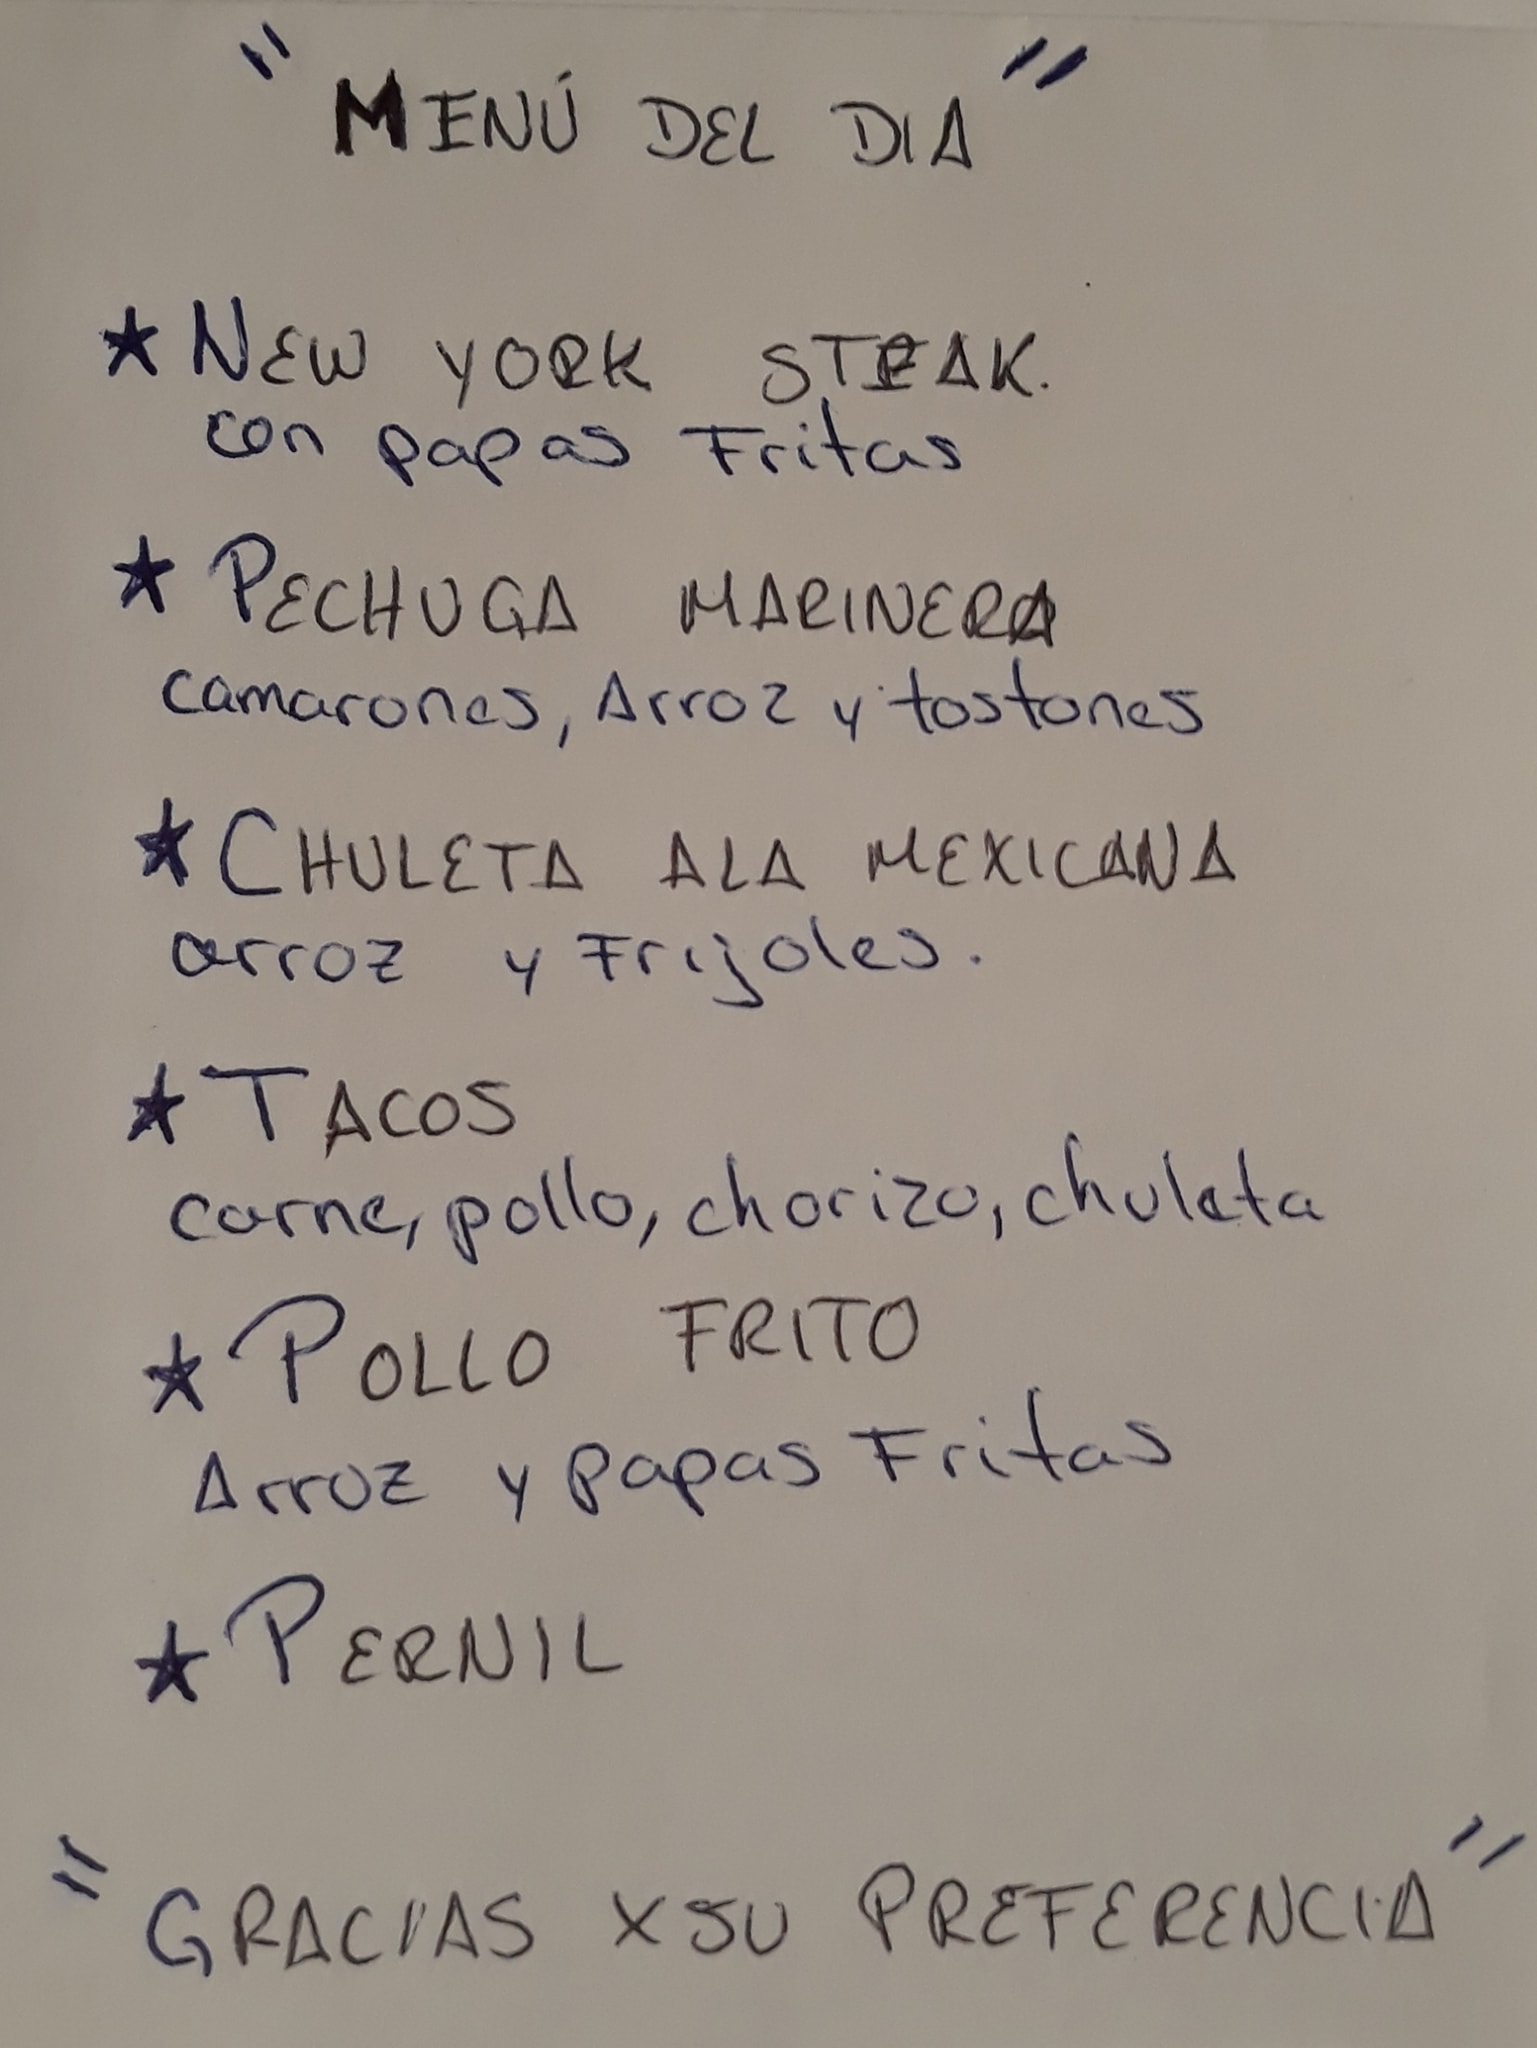 "MENÚ DEL DIA"
★ NEW YORK STEAK.
con papas Fritas
★ PECHUGA MARINERA
camarones, Arroz y tostones
★ CHULETA ALA MEXICANA
arroz y Frijoles.
★ TACOS
carne, pollo, chorizo, chuleta
★ POLLO FRITO
Arroz y papas Fritas
★ PERNIL
"GRACIAS X SU PREFERENCIA"